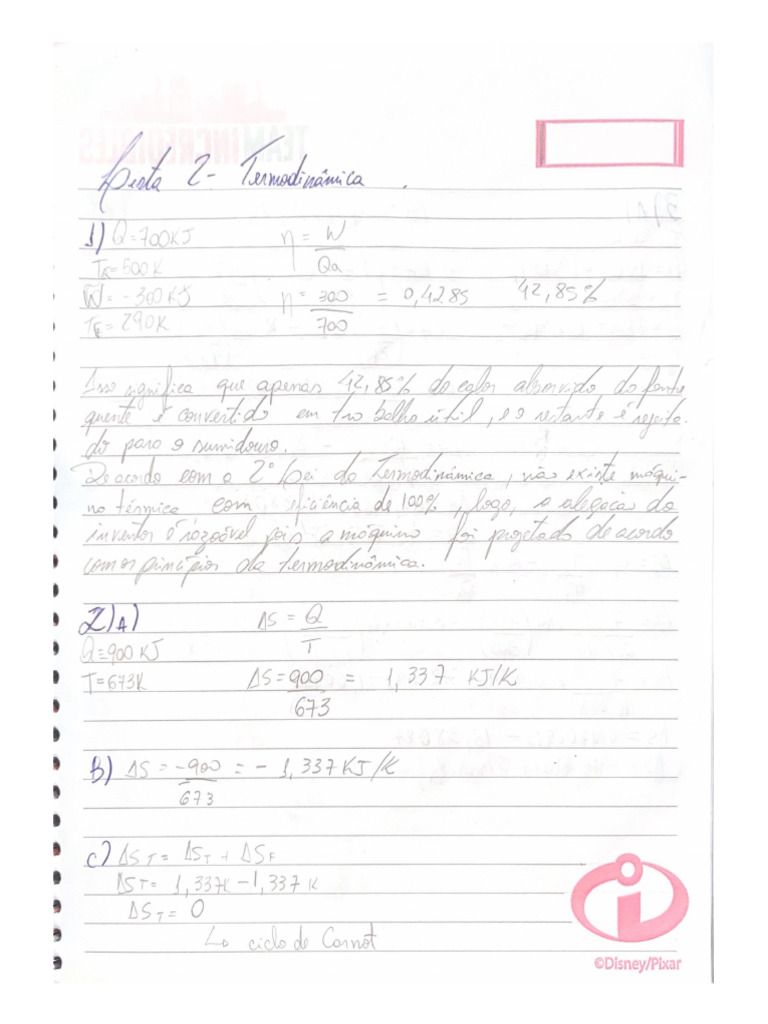 Lista 2 - Termodinâmica.
1) Q = 700KJ η = W / Qa
TQ = 500K
W = -300KJ η = 300 / 700 = 0,4285 42,85%
TF = 290K
Isso significa que apenas 42,85% do calor absorvido da fonte
quente é convertido em trabalho útil, e o restante é rejeita-
do para o sumidouro.
De acordo com a 2º Lei da Termodinâmica, não existe máqui-
na térmica com eficiência de 100%, logo, a alegação do
inventor é razoável pois a máquina foi projetada de acordo
com os princípios da termodinâmica.
2) A) ΔS = Q / T
Q = 900 KJ
T = 673K ΔS = 900 / 673 = 1,337 KJ/K
B) ΔS = -900 / 673 = - 1,337 KJ/K
C) ΔST = ΔST + ΔSF
ΔST = 1,337K - 1,337K
ΔST = 0
↳ ciclo de Carnot
©Disney/Pixar